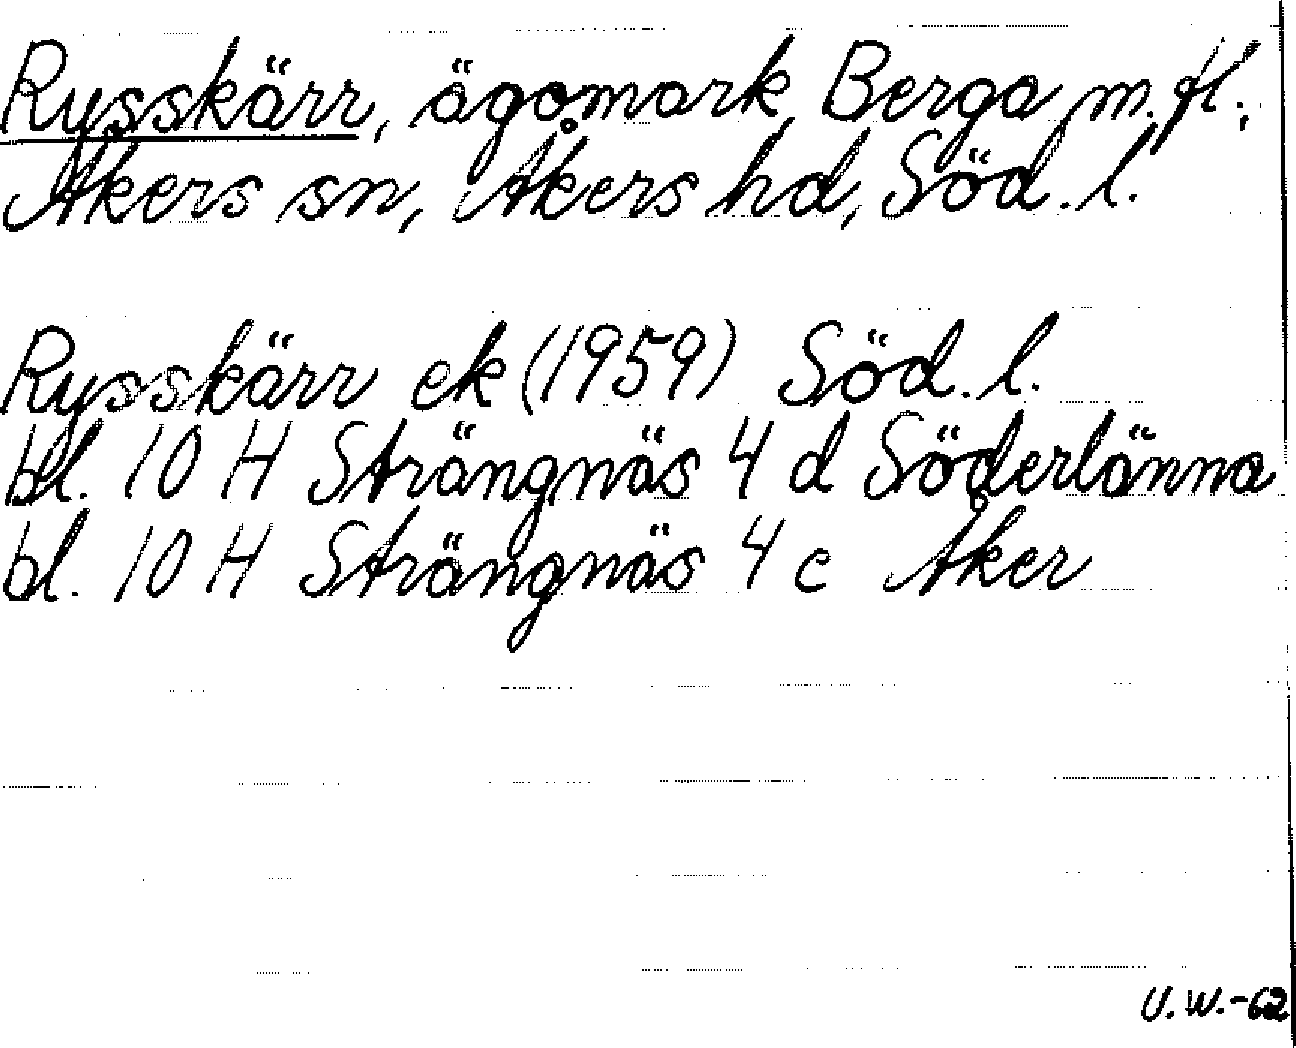 Rysskärr, ägomark, Berga m.fl.,
Åkers sn, Åkers hd, Söd.l.
Rysskärr ek (1959) Söd.l.
bl. 10 H Strängnäs 4 d Söderlänna
bl. 10 H Strängnäs 4 c Åker
U.W.-62